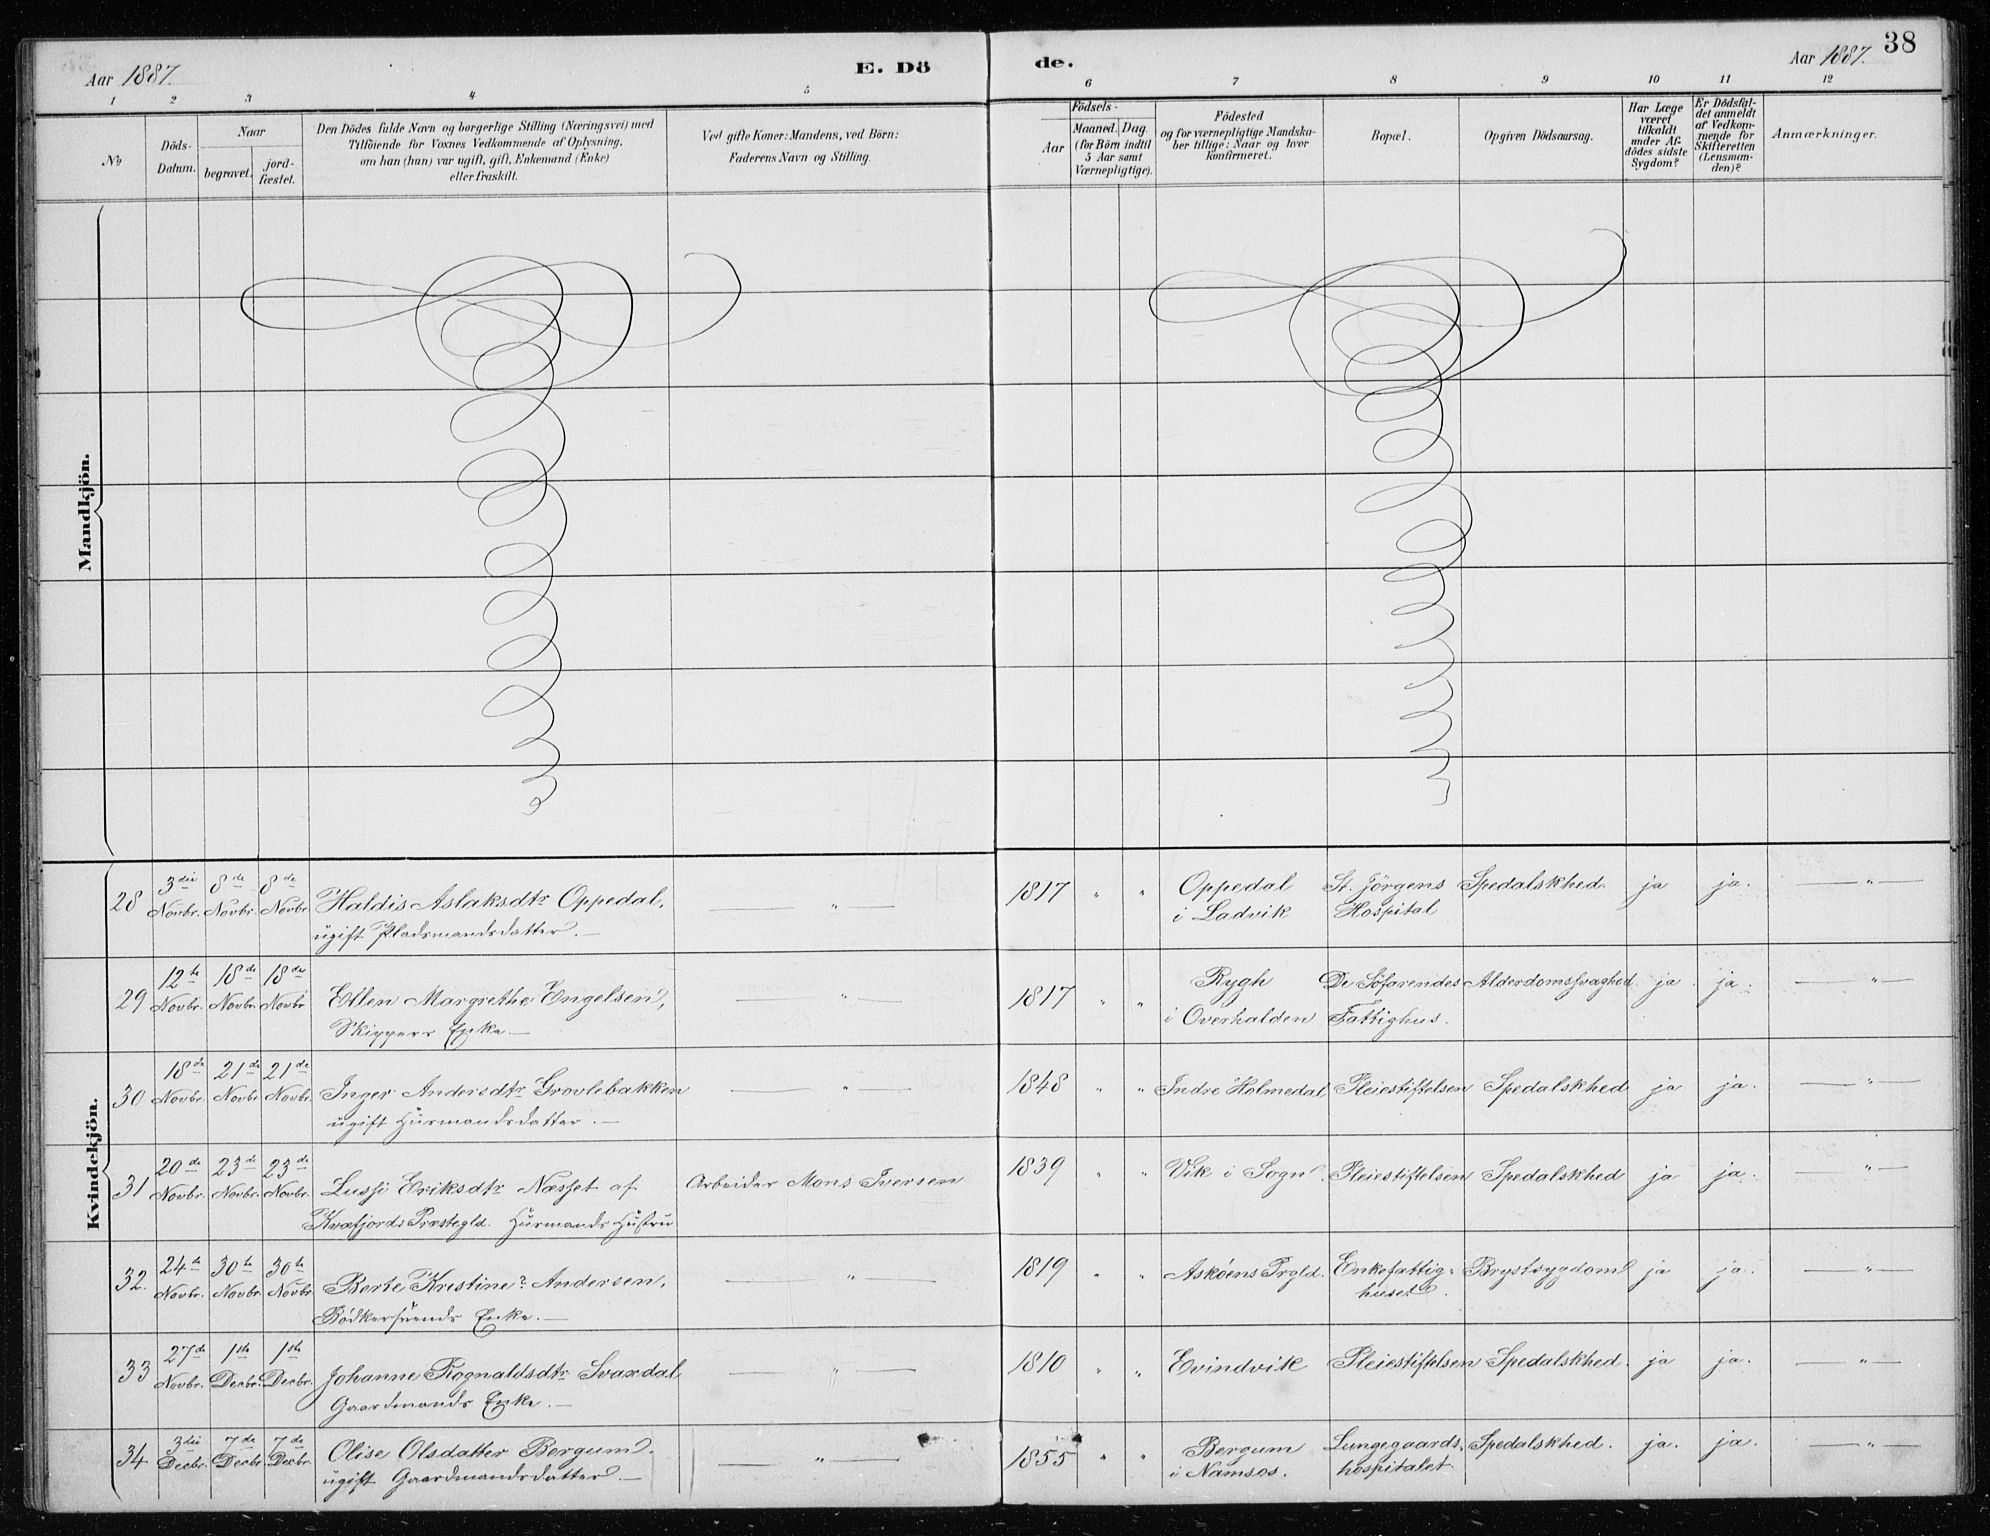 Aar 1887.
E. Dö
de.
Aar 1887.
38
1 2 3 4 5 6 7 8 9 10 11 12
No
Döds-
Datum.
Naar
begravet.
jord-
fæstet.
Den Dödes fulde Navn og borgerlige Stilling (Næringsvei) med
Tilföiende for Voxnes Vedkommende af Oplysning,
om han (hun) var ugift, gift, Enkemand (Enke)
eller fraskilt.
Ved gifte Koner: Mandens, ved Börn:
Faderens Navn og Stilling.
Födsels-
Aar
Maaned. Dag.
(for Börn indtil
5 Aar samt
Værnepligtige).
Födested
og for værnepligtige Mandska-
ber tillige: Naar og hvor
konfirmeret.
Bopæl.
Opgiven Dödsaarsag.
Har Læge
været
tilkaldt
under Af-
dödes sidste
Sygdom?
Er Dödsfal-
det anmeldt
af Vedkom-
mende for
Skifteretten
(Lensman-
den)?
Anmærkninger.
Mandkjön.
Kvindekjön.
28 3die Novbr. 8de Novbr. 8de Novbr. Haldis Aslaksdtr Oppedal, — " — 1817 " " Oppedal St. Jörgens Spedalskhed. ja ja. — " —
ugift Pladsmandsdatter. — i Ladvik Hospital
29 12te Novbr. 18de Novbr. 18de Novbr. Ellen Margrethe Engelsen, — " — 1817 " " Rygh De Söfarendes Alderdomssvaghed. ja ja. — " —
Skippers Enke — i Overhalden Fattighus.
30 18de Novbr. 21de Novbr. 21de Novbr. Inger Andersdtr Grovlebakken — " — 1848 " " Indre Holmedal Pleiestiftelsen Spedalskhed ja ja. — " —
ugift Husmandsdatter. —
31 20de Novbr. 23de Novbr. 23de Novbr. Lussi Eriksdtr Næsset af Arbeider Mons Iversen 1839 " " Vik i Sogn. Pleiestiftelsen Spedalskhed ja ja. — " —
Kvæfjords Præstegld. Husmands Hustru
32. 24de Novbr. 30te Novbr. 30te Novbr. Berte Kristine? Andersen, — " — 1819 " " Asköens Prgld. Enkefattig- Brystsygdom ja ja. — " —
Bödkersvends Enke. — huset.
33 27de Novbr. 1ste Decbr. 1ste Decbr. Johanne Rognaldsdtr Svardal — " — 1810 " " Evindvik Pleiestiftelsen Spedalskhed. ja ja. — " —
Gaardmands Enke. —
34 3die Decbr. 7de Decbr. 7de Decbr. Olise Olsdatter Bergum. — " — 1855 " " Bergum Lungegaards- Spedalskhed. ja. ja. — " —
ugift Gaardmandsdatter. — i Namsos. hospitalet.